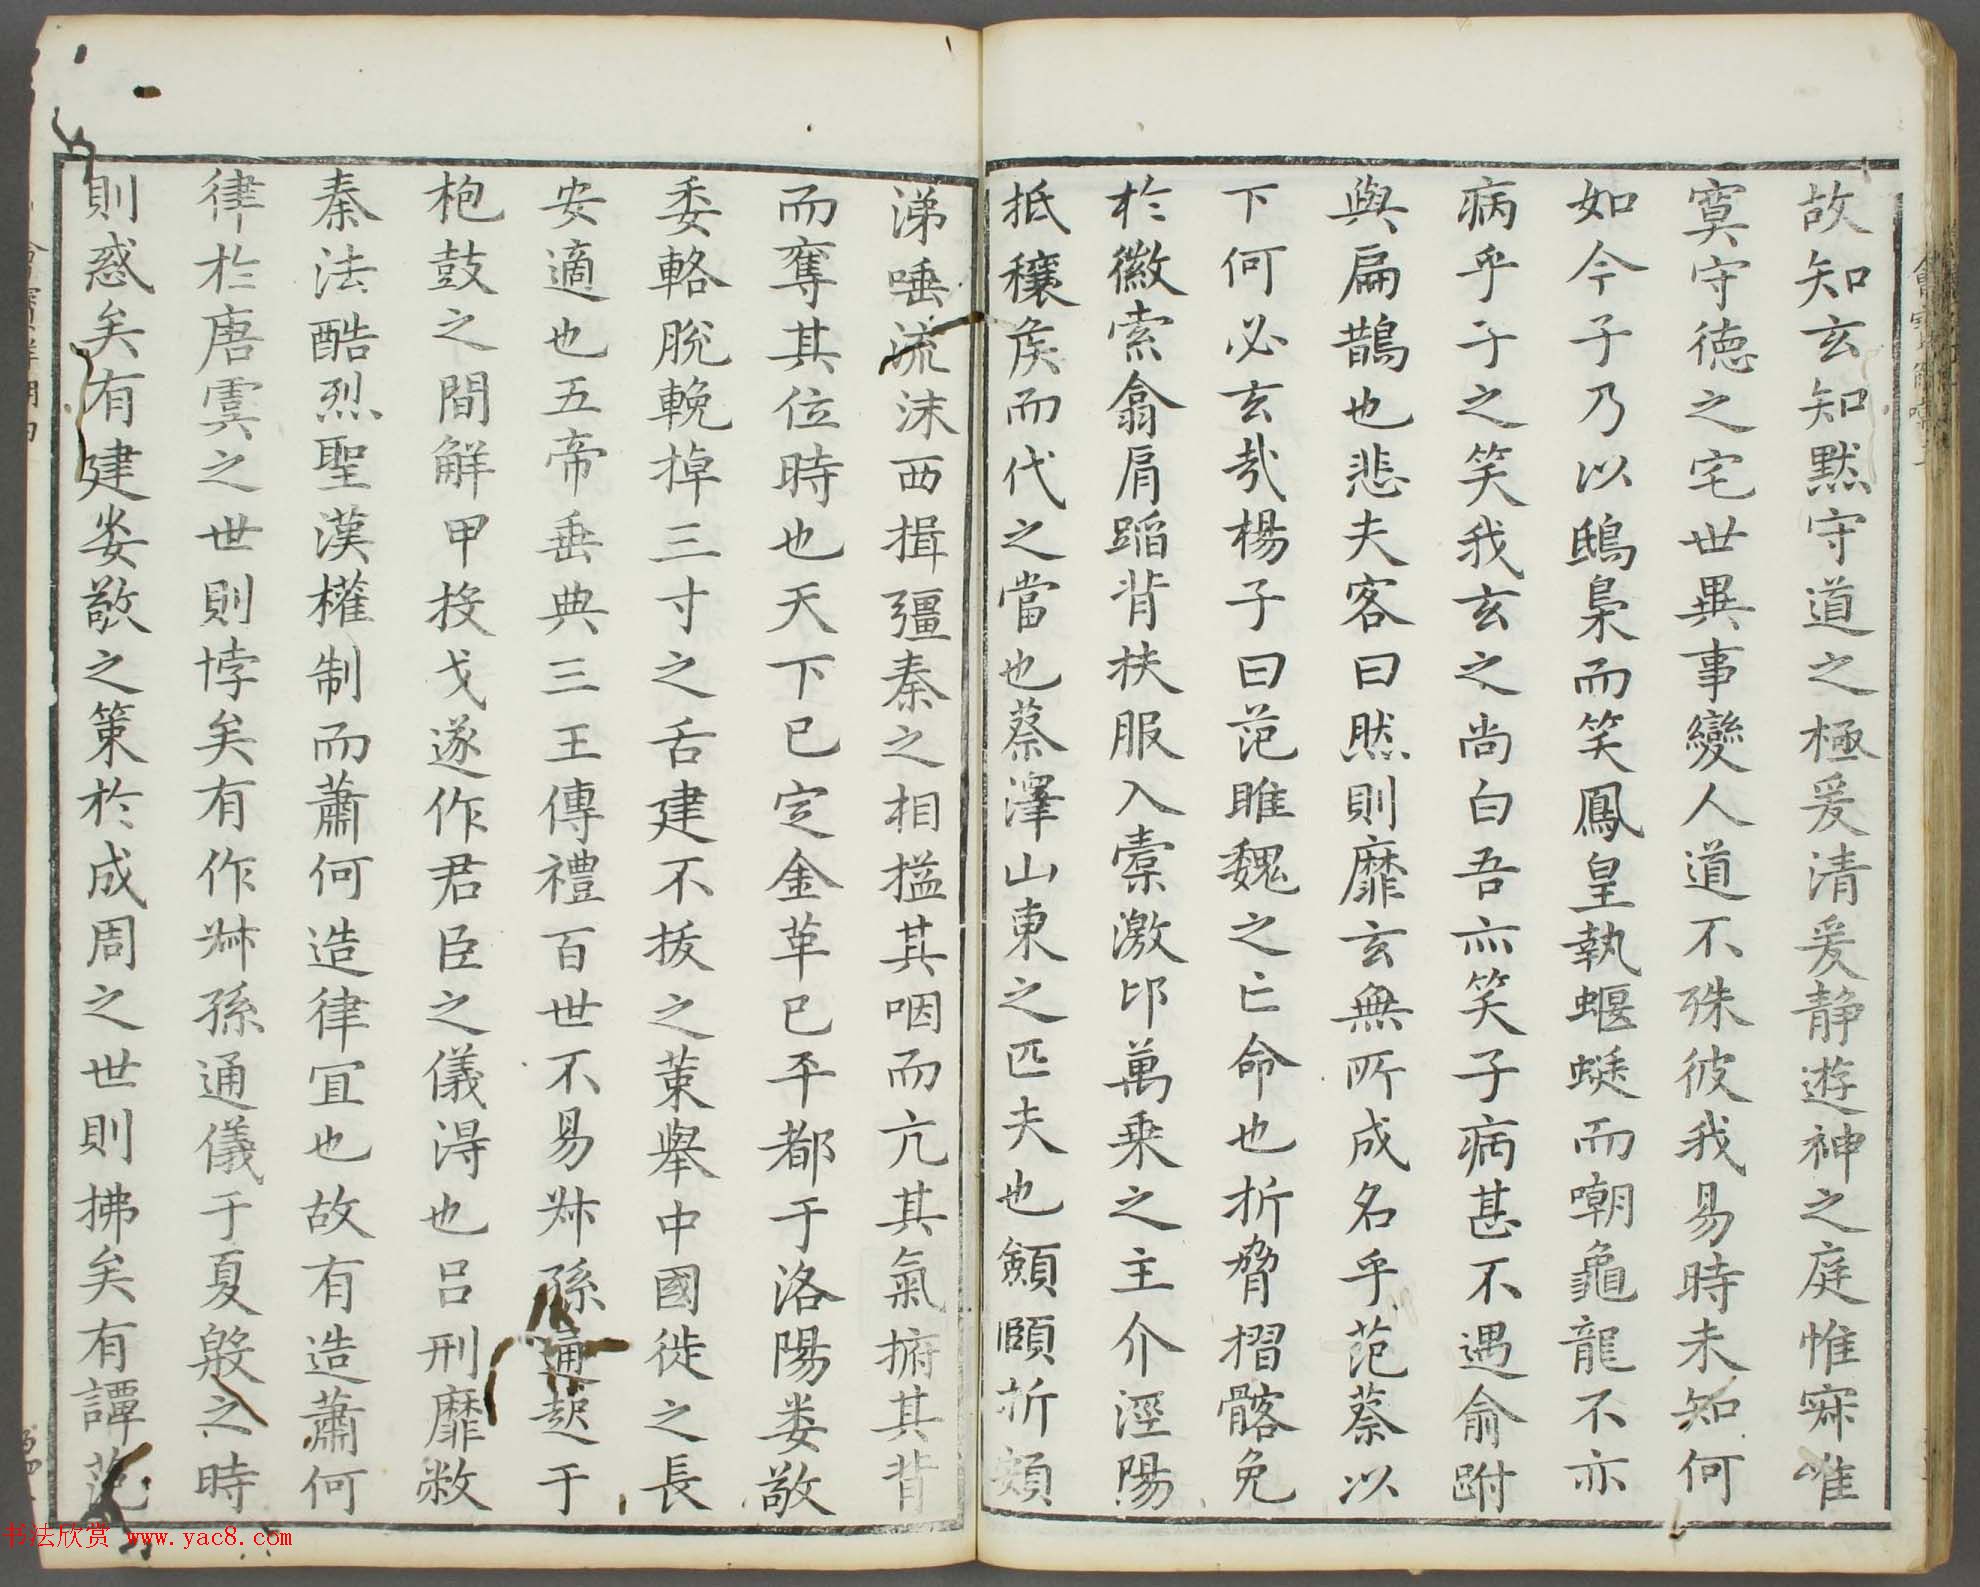 故知玄知黙守道之極爰清爰静遊神之庭惟寂惟
寞守徳之宅世異事變人道不殊彼我易時未知何
如今子乃以鴟梟而笑鳳皇執蝘蜓而嘲龜龍不亦
病乎子之笑我玄之尚白吾亦笑子病甚不遇俞跗
與扁鵲也悲夫客曰然則靡玄無所成名乎范蔡以
下何必玄哉楊子曰范雎魏之亡命也折脅摺髂免
於徽索翕肩蹈背扶服入橐激卬萬乗之主介涇陽
抵穰侯而代之當也蔡澤山東之匹夫也顩頤折頞
涕唾流沫西揖彊秦之相搤其咽而亢其氣捬其背
而奪其位時也天下已定金革已平都于洛陽娄敬
委輅脫輓掉三寸之舌建不拔之策舉中國徙之長
安適也五帝垂典三王傳禮百世不易叔孫通起于
枹鼓之間解甲投戈遂作君臣之儀淂也吕刑靡敝
秦法酷烈聖漢權制而蕭何造律宜也故有造蕭何
律於唐虞之世則悖矣有作叔孫通儀于夏殷之時
則惑矣有建娄敬之策於成周之世則拂矣有譚范
书法欣赏 www.yac8.com